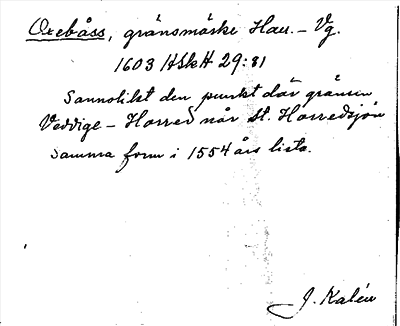 Oxebåss, gränsmärke Hall. – Vg.
1603 HSkH 29:81
Sannolikt den punkt där gränsen
Veddige – Horred når St. Horredsjön
Samma form i 1554 års lista.
J. Kalén